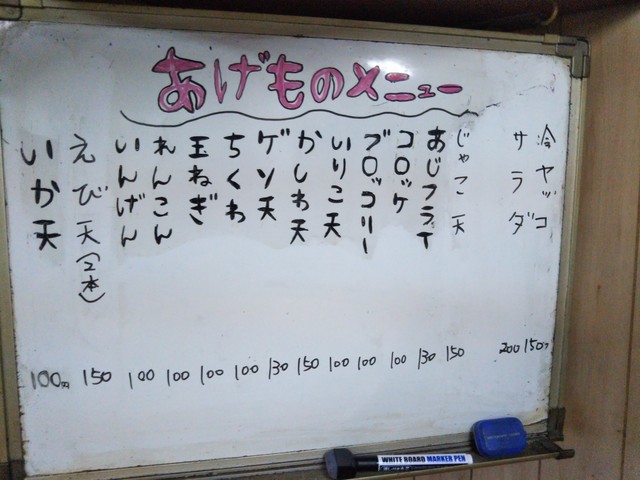 あげものメニュー
冷ヤッコ 150円
サラダ 200
じゃこ天 150
あじフライ 130
コロッケ 100
ブロッコリー 100
いりこ天 100
かしわ天 150
ゲソ天 130
ちくわ 100
玉ねぎ 100
れんこん 100
いんげん 100
えび天(2本) 150
いか天 100円
WHITE BOARD MARKER PEN